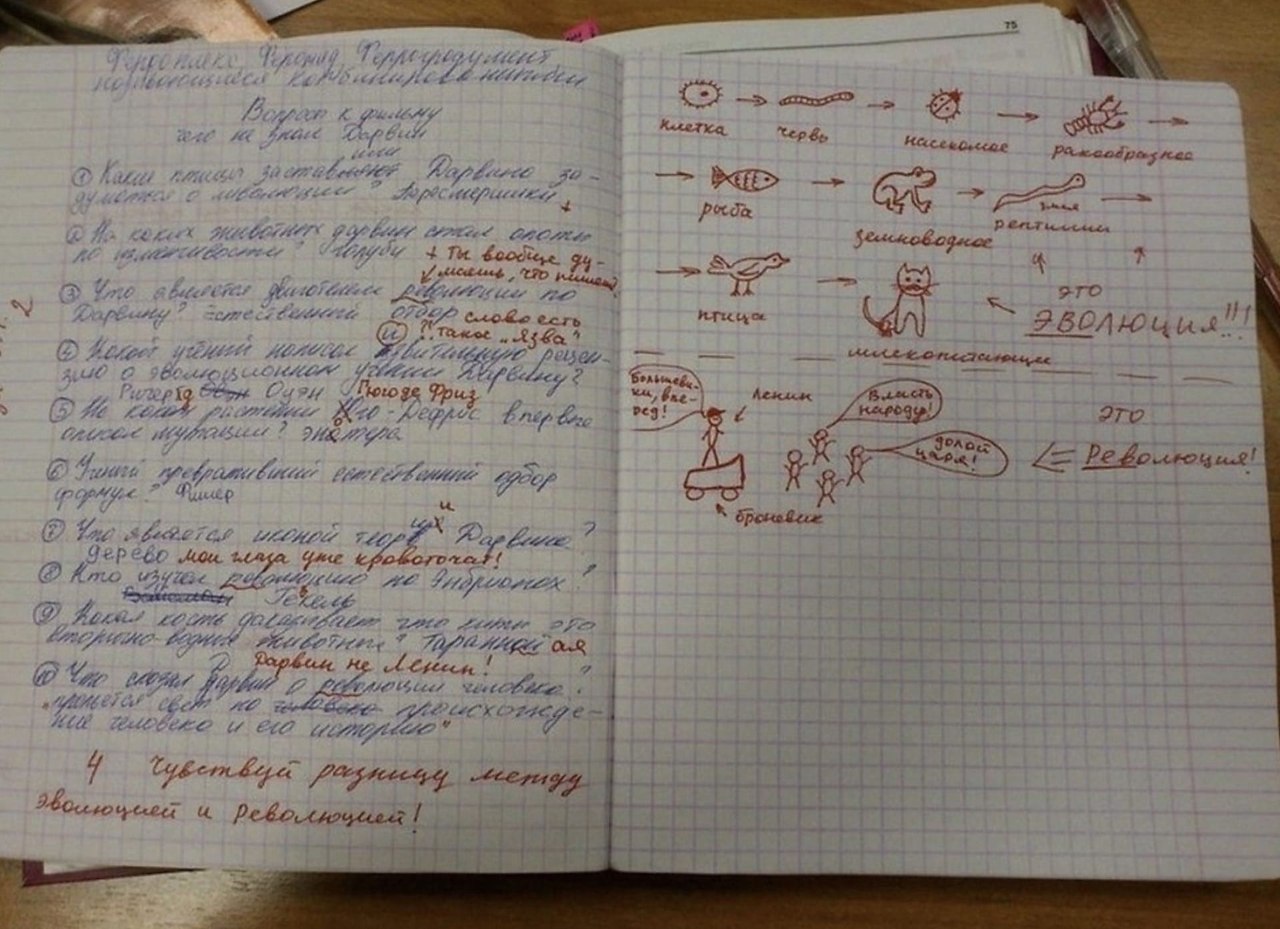 75
Ферроплекс, Ферокад, Феррогродумент
комбинированными
Вопросы к фильму
чего не знал Дарвин
или
① Какие птицы заставляют Дарвина за-
думаться о революции? Пересмешники +
② На каких животных дарвин ставил опыты
по изменчивости? голуби + Ты вообще ду-
маешь, что пишешь
③ Что является двигателем революции по
Дарвину? Естественный отбор слово есть
такое „язва“
④ Какой учёный написал язвительную рецен-
зию о эволюционном учении Дарвину?
Ричард Оуэн Гюго де Фриз
⑤ На каком растении Гюго-Дефрис впервые
описал мутации? энотера
⑥ Учёный превративший естественный одбор
формук? Фишер
⑦ Что является иконой теории Дарвина?
дерево мои глаза уже кровоточат!
⑧ Кто изучал революцию по Энбрионах?
Геккель
⑨ Какая кость доказывает что киты это
вторично-водные животные? Таранной ая
Дарвин не Ленин!
⑩ Что сказал Дарвин о революции человека?
„прольётся свет на человека происхожде-
ние человека и его историю“
4 Чувствуй разницу между
эволюцией и Революцией!
2
клетка червь насекомое ракообразное
рыба земноводное змея рептилии
птица млекопитающие
это
ЭВОЛЮЦИЯ!!!
Большеви-
ки, впе-
ред!
Ленин
Власть
народу!
долой
царя!
броневик
это
Революция!